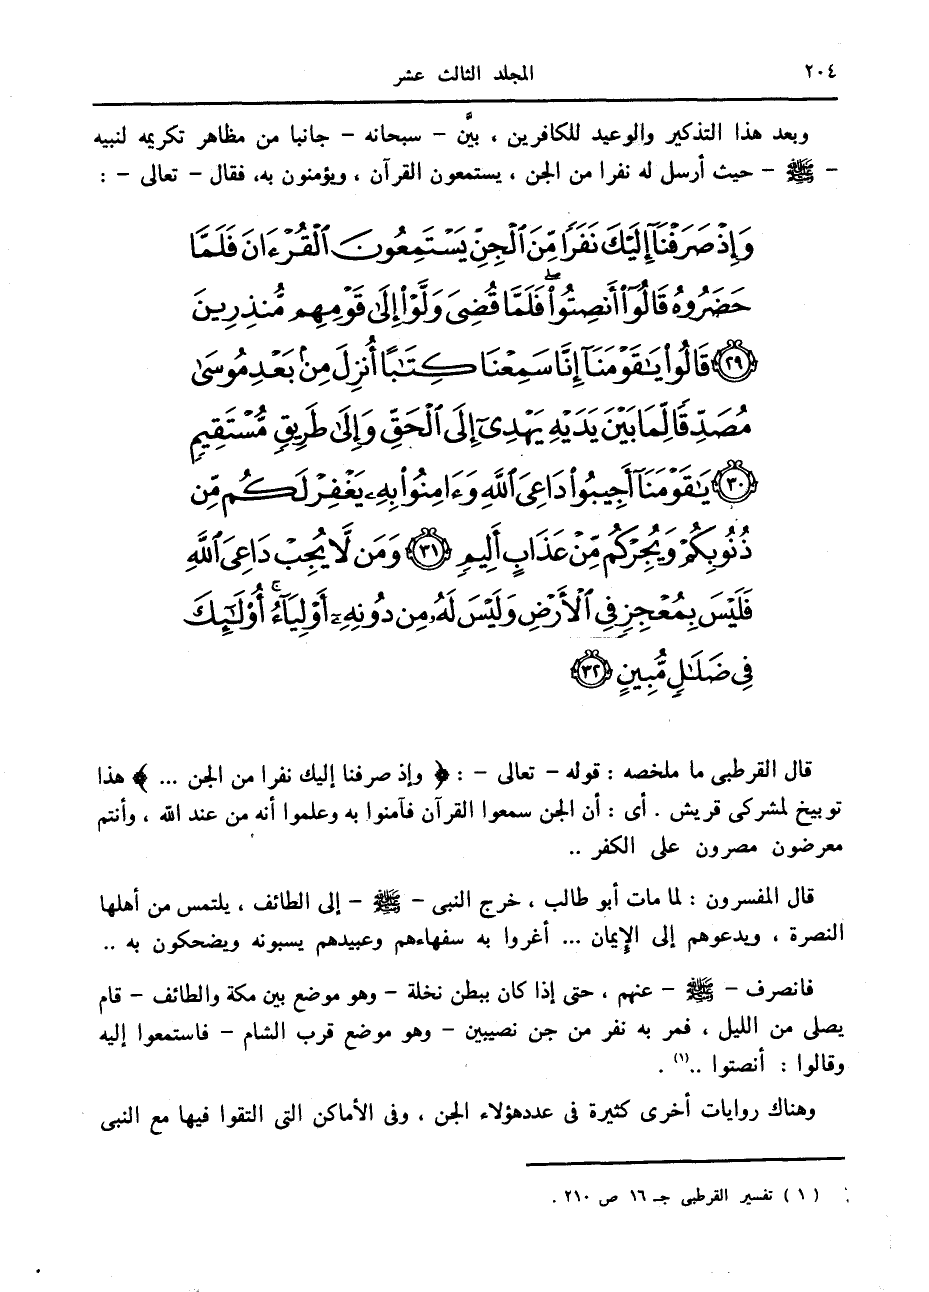 ٢٠٤ المجلد الثالث عشر
وبعد هذا التذكير والوعيد للكافرين ، بيَّن – سبحانه – جانبا من مظاهر تكريمه لنبيه
– ﷺ – حيث أرسل له نفرا من الجن ، يستمعون القرآن ، ويؤمنون به، فقال – تعالى – :
وَإِذْ صَرَفْنَآ إِلَيْكَ نَفَرًا مِّنَ ٱلْجِنِّ يَسْتَمِعُونَ ٱلْقُرْءَانَ فَلَمَّا
حَضَرُوهُ قَالُوٓا۟ أَنصِتُوا۟ ۖ فَلَمَّا قُضِىَ وَلَّوْا۟ إِلَىٰ قَوْمِهِم مُّنذِرِينَ
﴿٢٩﴾ قَالُوا۟ يَٰقَوْمَنَآ إِنَّا سَمِعْنَا كِتَٰبًا أُنزِلَ مِنۢ بَعْدِ مُوسَىٰ
مُصَدِّقًا لِّمَا بَيْنَ يَدَيْهِ يَهْدِىٓ إِلَى ٱلْحَقِّ وَإِلَىٰ طَرِيقٍ مُّسْتَقِيمٍ
﴿٣٠﴾ يَٰقَوْمَنَآ أَجِيبُوا۟ دَاعِىَ ٱللَّهِ وَءَامِنُوا۟ بِهِۦ يَغْفِرْ لَكُم مِّن
ذُنُوبِكُمْ وَيُجِرْكُم مِّنْ عَذَابٍ أَلِيمٍ ﴿٣١﴾ وَمَن لَّا يُجِبْ دَاعِىَ ٱللَّهِ
فَلَيْسَ بِمُعْجِزٍ فِى ٱلْأَرْضِ وَلَيْسَ لَهُۥ مِن دُونِهِۦٓ أَوْلِيَآءُ ۚ أُو۟لَٰٓئِكَ
فِى ضَلَٰلٍ مُّبِينٍ ﴿٣٢﴾
قال القرطبى ما ملخصه : قوله – تعالى – : ﴿ وإذ صرفنا إليك نفرا من الجن ... ﴾ هذا
توبيخ لمشركى قريش . أى : أن الجن سمعوا القرآن فآمنوا به وعلموا أنه من عند الله ، وأنتم
معرضون مصرون على الكفر ..
قال المفسرون : لما مات أبو طالب ، خرج النبى – ﷺ – إلى الطائف ، يلتمس من أهلها
النصرة ، ويدعوهم إلى الإيمان ... أغروا به سفهاءهم وعبيدهم يسبونه ويضحكون به ..
فانصرف – ﷺ – عنهم ، حتى إذا كان ببطن نخلة – وهو موضع بين مكة والطائف – قام
يصلى من الليل ، فمر به نفر من جن نصيبين – وهو موضع قرب الشام – فاستمعوا إليه
وقالوا : أنصتوا ..(١) .
وهناك روايات أخرى كثيرة فى عددهؤلاء الجن ، وفى الأماكن التى التقوا فيها مع النبى
( ١ ) تفسير القرطبى جـ ١٦ ص ٢١٠ .